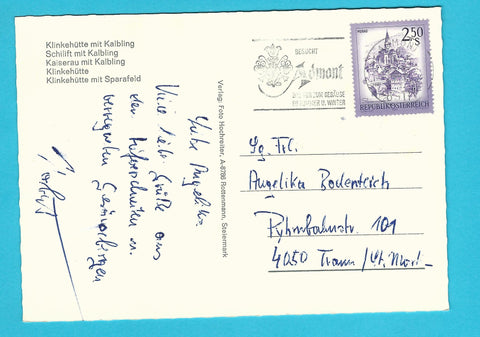 Klinkehütte mit Kalbling
Schilift mit Kalbling
Kaiserau mit Kalbling
Klinkehütte
Klinkehütte mit Sparafeld
Verlag: Foto Hochreiter, A-8786 Rottenmann, Steiermark
BESUCHT
Admont
SOMMER U. WINTER
MURAU
2.50
S
REPUBLIK ÖSTERREICH
Liebe Angelika
Viele liebe Grüße aus
den
Gesäusebergen
Angelika Bodenteich
Rythmbahnstr. 101
4050 Traun